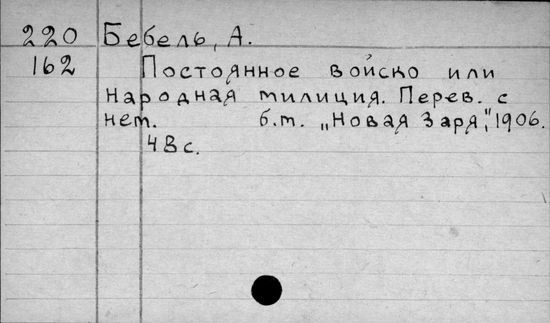 220 Бебель, А.
162 Постоянное войско или
народная милиция. Перев. с
нем. б.м. „Новая Заря", 1906.
48 с.